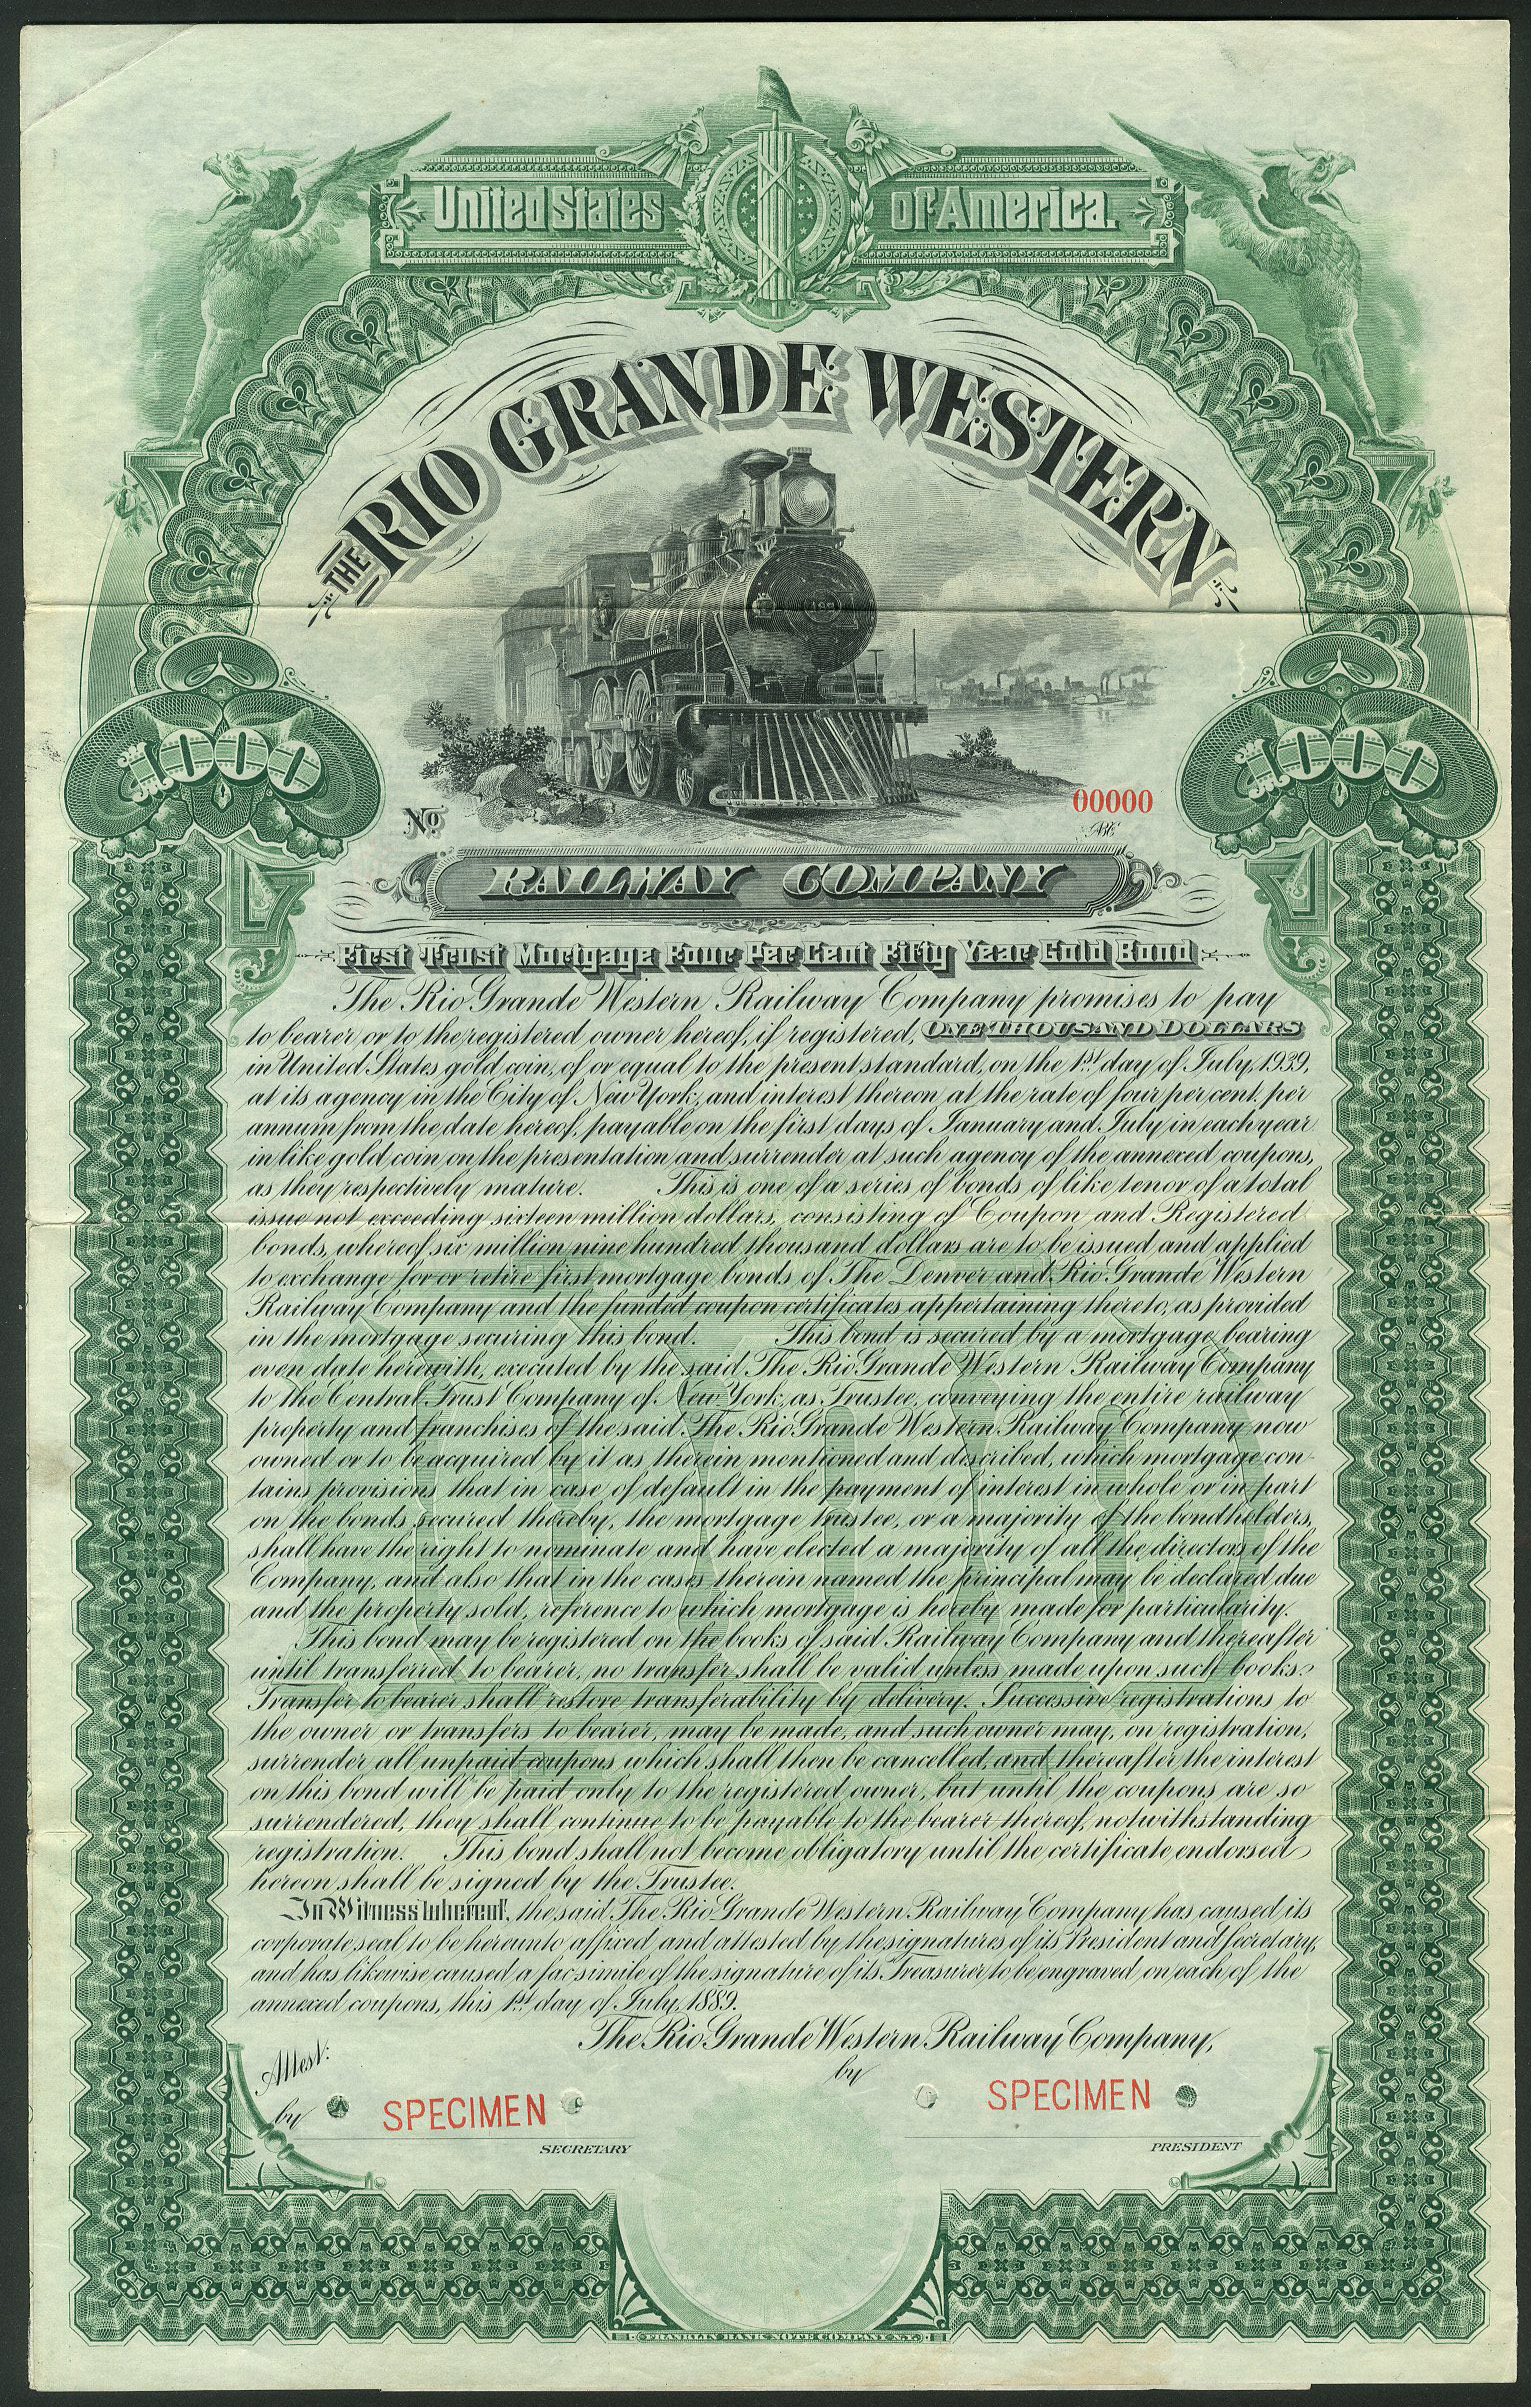 United States of America.
THE RIO GRANDE WESTERN
1000 1000
No
00000
RAILWAY COMPANY
First Trust Mortgage Four Per Cent Fifty Year Gold Bond
The Rio Grande Western Railway Company promises to pay
to bearer or to the registered owner hereof, if registered, ONE THOUSAND DOLLARS
in United States gold coin, of or equal to the present standard, on the 1st day of July, 1939,
at its agency in the City of New York, and interest thereon at the rate of four per cent. per
annum from the date hereof, payable on the first days of January and July in each year
in like gold coin on the presentation and surrender at such agency of the annexed coupons,
as they respectively mature. This is one of a series of bonds of like tenor of a total
issue not exceeding sixteen million dollars, consisting of Coupon and Registered
bonds, whereof six million nine hundred thousand dollars are to be issued and applied
to exchange for or retire first mortgage bonds of The Denver and Rio Grande Western
Railway Company and the funded coupon certificates appertaining thereto, as provided
in the mortgage securing this bond. This bond is secured by a mortgage, bearing
even date herewith, executed by the said The Rio Grande Western Railway Company
to the Central Trust Company of New York, as Trustee, conveying the entire railway
property and franchises of the said The Rio Grande Western Railway Company now
owned or to be acquired by it as therein mentioned and described, which mortgage con-
tains provisions that in case of default in the payment of interest in whole or in part
on the bonds secured thereby, the mortgage trustee, or a majority of the bondholders,
shall have the right to nominate and have elected a majority of all the directors of the
Company, and also that in the cases therein named the principal may be declared due
and the property sold, reference to which mortgage is hereby made for particularity.
This bond may be registered on the books of said Railway Company and thereafter
until transferred to bearer, no transfer shall be valid unless made upon such books.
Transfer to bearer shall restore transferability by delivery. Successive registrations to
the owner or transfers to bearer, may be made, and such owner may, on registration,
surrender all unpaid coupons which shall then be cancelled, and thereafter the interest
on this bond will be paid only to the registered owner, but until the coupons are so
surrendered, they shall continue to be payable to the bearer thereof, notwithstanding
registration. This bond shall not become obligatory until the certificate endorsed
hereon shall be signed by the Trustee.
In Witness Whereof, the said The Rio Grande Western Railway Company has caused its
corporate seal to be hereunto affixed and attested by the signatures of its President and Secretary,
and has likewise caused a facsimile of the signature of its Treasurer to be engraved on each of the
annexed coupons, this 1st day of July, 1889.
The Rio Grande Western Railway Company,
Attest:
by
by SPECIMEN
SPECIMEN
SECRETARY
PRESIDENT
FRANKLIN BANK NOTE COMPANY N.Y.